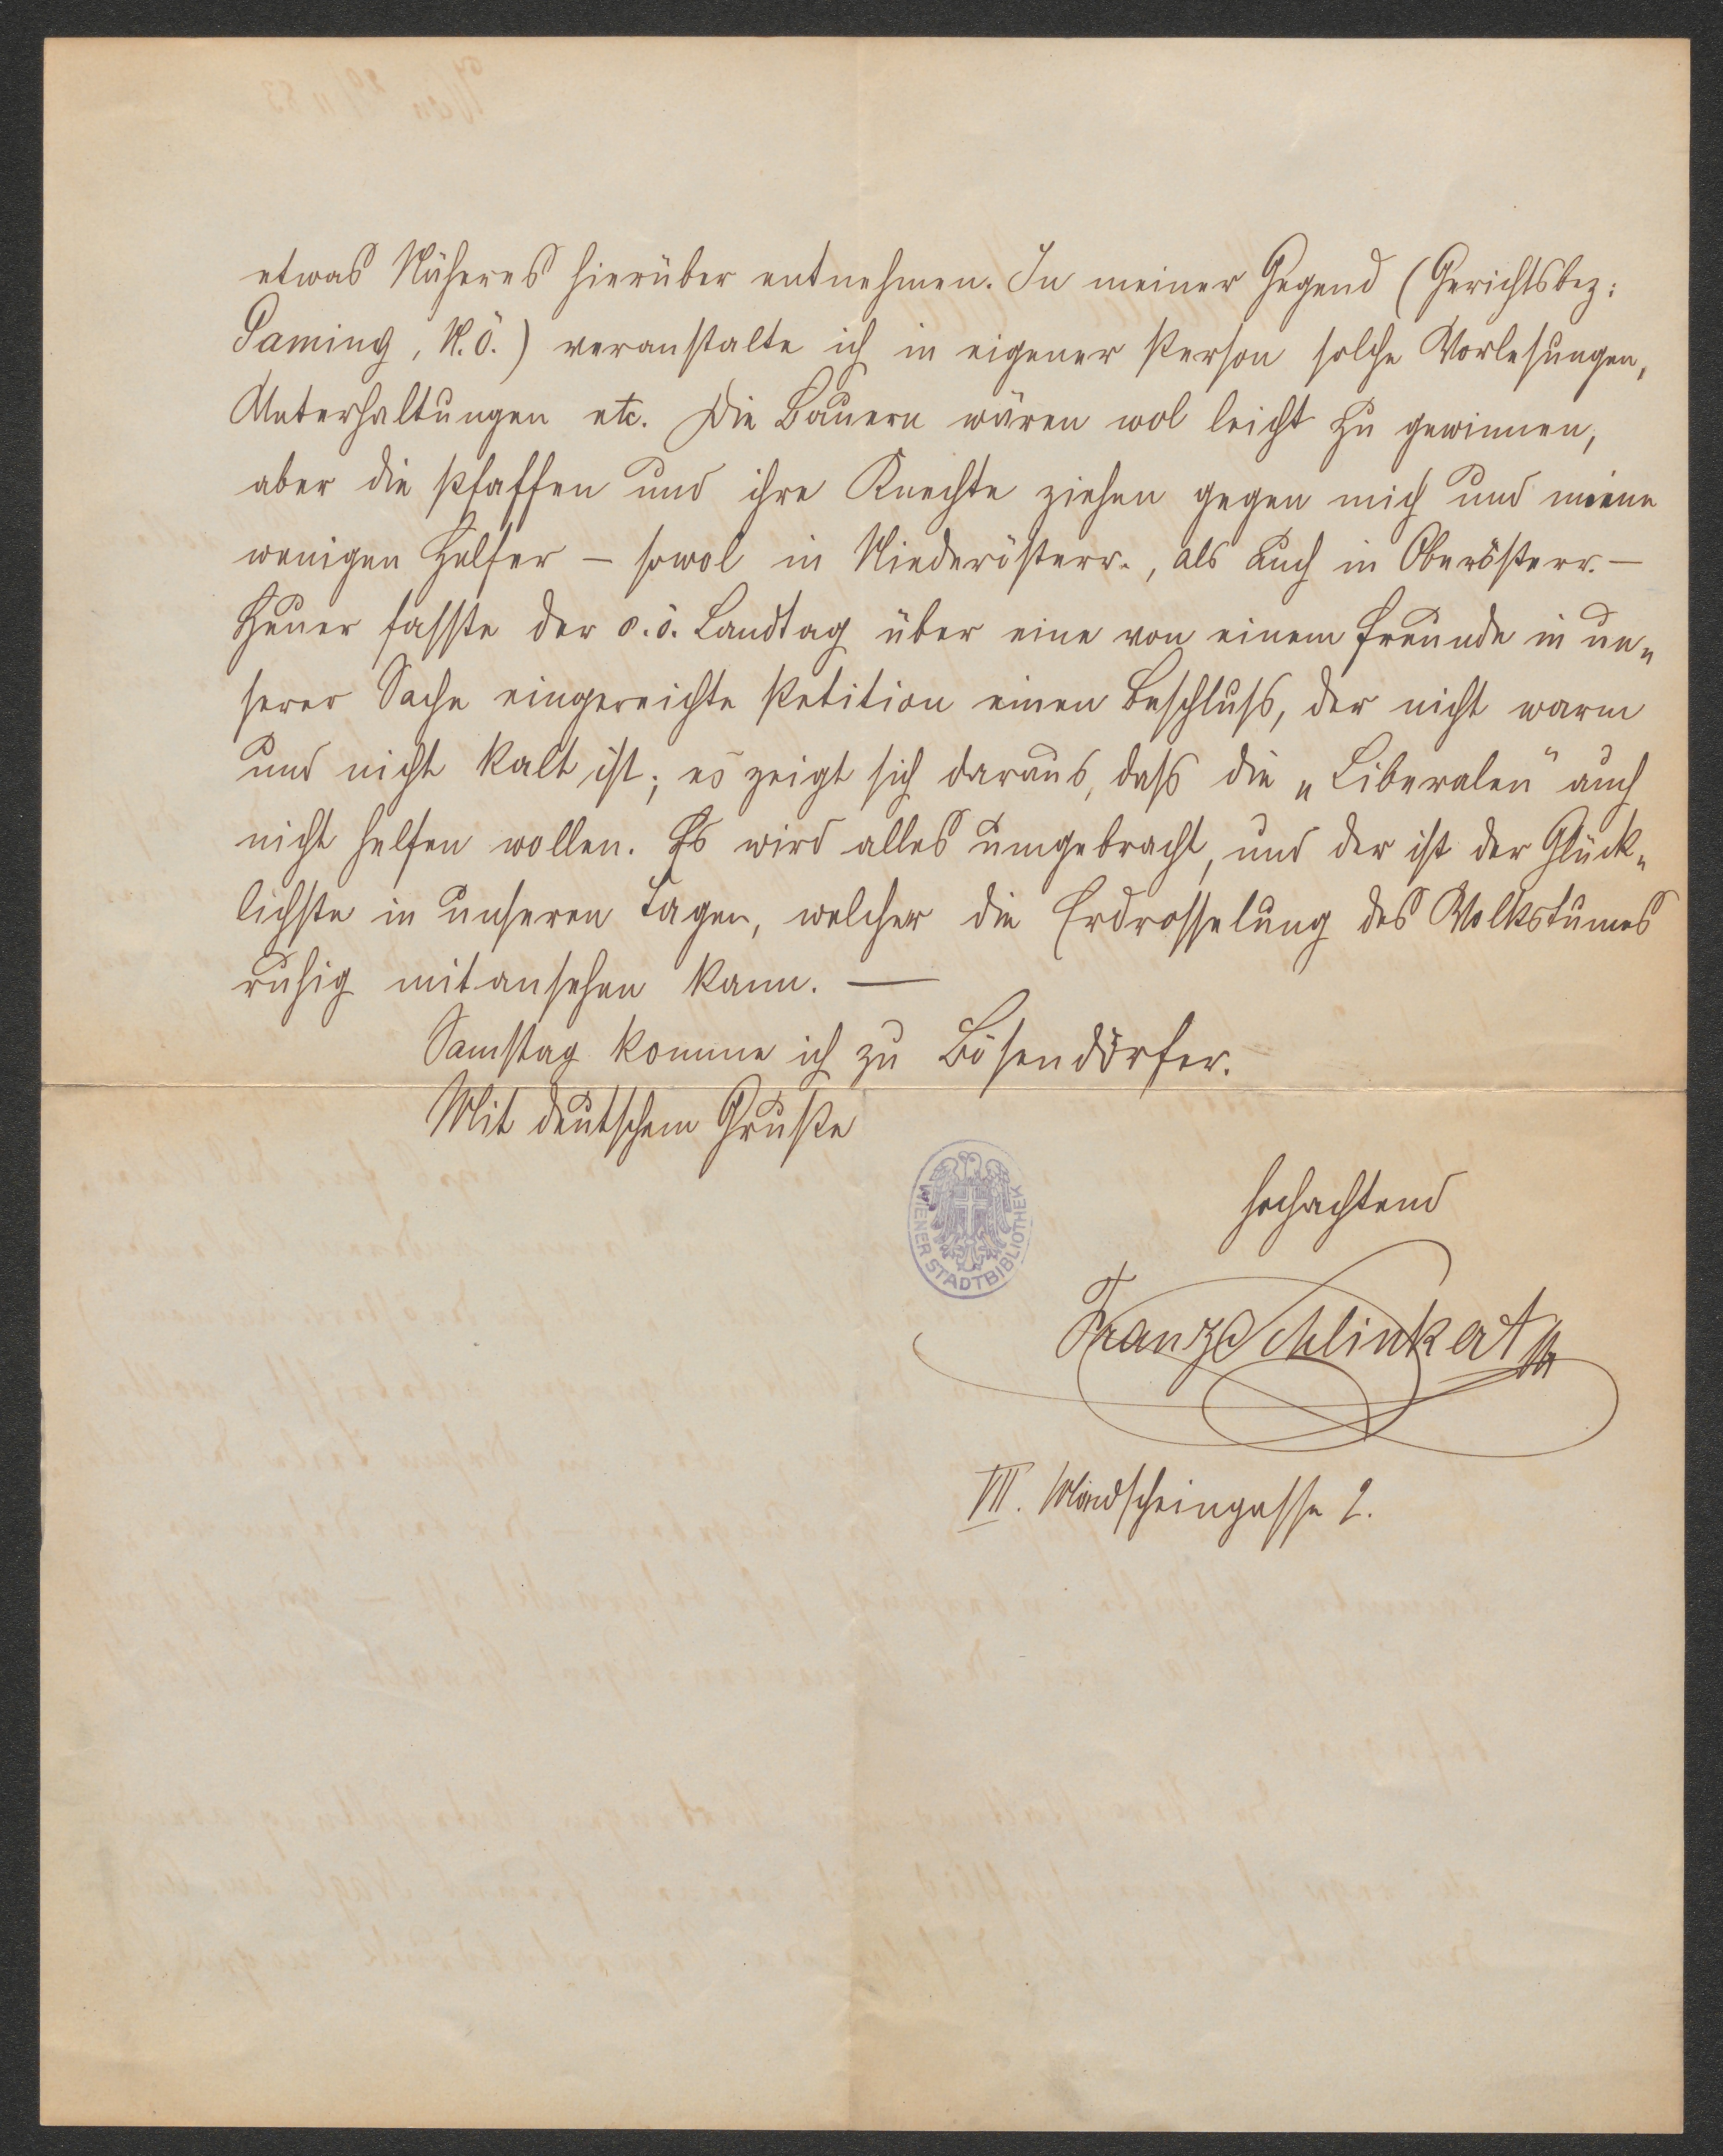 etwas Näheres hierüber entnehmen. In meiner Gegend (Gerichtsbez:
Gaming, N. Ö.) veranstalte ich in eigener Person solche Vorlesungen,
Unterhaltungen etc. Die Bauern wären wol leicht zu gewinnen,
aber die Pfaffen und ihre Knechte ziehen gegen mich und meine
wenigen Helfer – sowol in Niederösterr., als auch in Oberösterr. –
Heuer fasste der o. ö. Landtag über eine von einem Freunde in un„
serer Sache eingereichte Petition einen Beschluss, der nicht warm
und nicht kalt ist; es zeigt sich daraus, dass die „Liberalen“ auch
nicht helfen wollen. Es wird alles umgebracht, und der ist der Glück„
lichste in unseren Tagen, welcher die Erdrosselung des Volkstumes
ruhig mitansehen kann. —
Samstag komme ich zu Bösendörfer.
Mit deutschem Gruße
hochachtend
WIENER STADTBIBLIOTHEK
Franz Schlinkert
VII. Mondscheingasse 2.